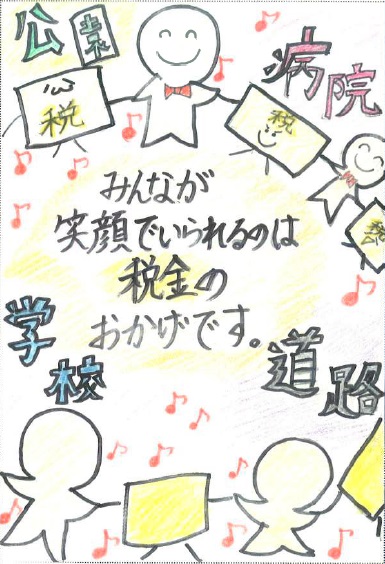 公園
病院
税
税
税
みんなが
笑顔でいられるのは
税金の
おかげです。
学校
道路